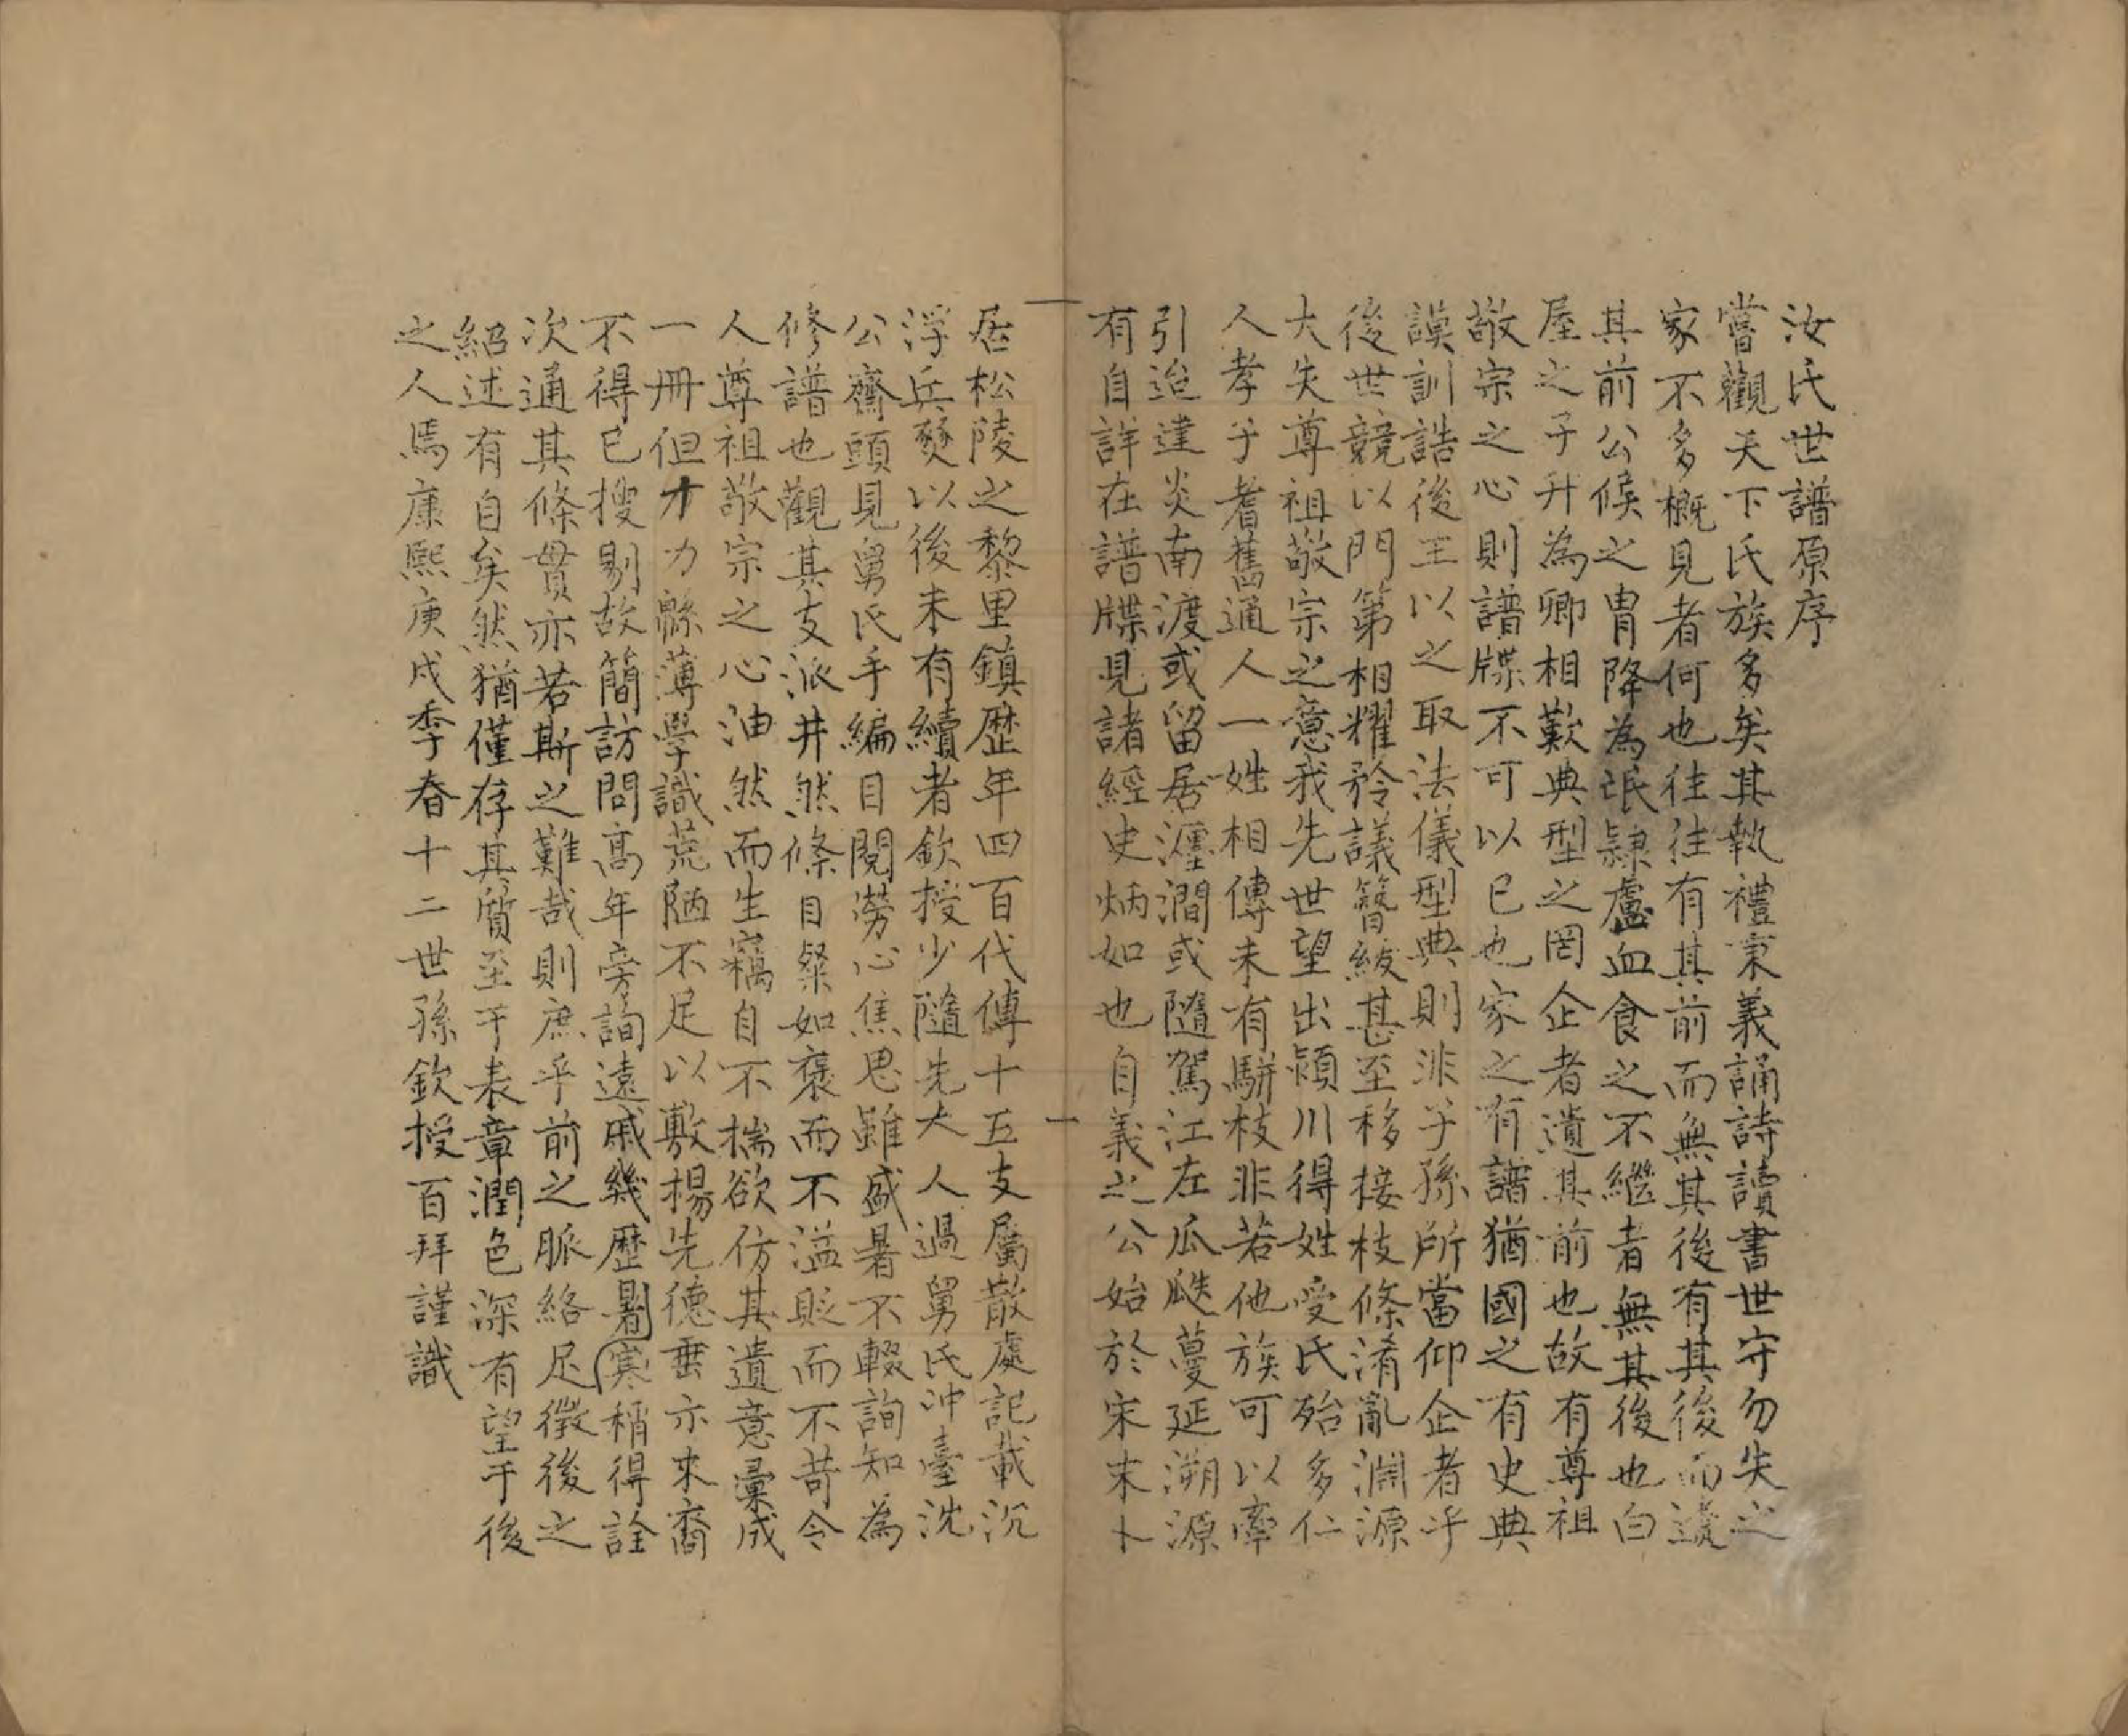 汝氏世譜原序
嘗觀天下氏族多矣其執禮秉義誦詩讀書世守勿失之
家不多概見者何也往往有其前而無其後有其後而遺
其前公候之胄降為氓隸廬血食之不繼者無其後也白
屋之子升為卿相歎典型之罔企者遺其前也故有尊祖
敬宗之心則譜牒不可以已也家之有譜猶國之有史典
謨訓誥後王以之取法儀型典則非子孫所當仰企者乎
後世競以門第相耀矜議簪紱甚至移接枝條淆亂淵源
大失尊祖敬宗之意我先世望出潁川得姓受氏殆多仁
人孝子耆舊通人一姓相傳未有駢枝非若他族可以牽
引迨建炎南渡或留居瀍澗或隨駕江左瓜瓞蔓延溯源
有自詳在譜牒見諸經史炳如也自義之公始於宋末卜
居松陵之黎里鎮歷年四百代傳十五支屬散處記載沉
浮兵燹以後未有續者欽授少隨先大人過舅氏沖臺沈
公齋頭見舅氏手編目閱勞心焦思雖盛暑不輟詢知為
修譜也觀其支派井然條目粲如褒而不溢貶而不苛令
人尊祖敬宗之心油然而生竊自不揣欲仿其遺意彙成
一冊但才力綿薄學識荒陋不足以敷揚先德垂示來裔
不得已搜剔故簡訪問高年旁詢遠戚幾歷暑寒稍得詮
次通其條貫亦若斯之難哉則庶乎前之脈絡足徵後之
紹述有自矣然猶僅存其質至于表章潤色深有望于後
之人焉康熙庚戌季春十二世孫欽授百拜謹識